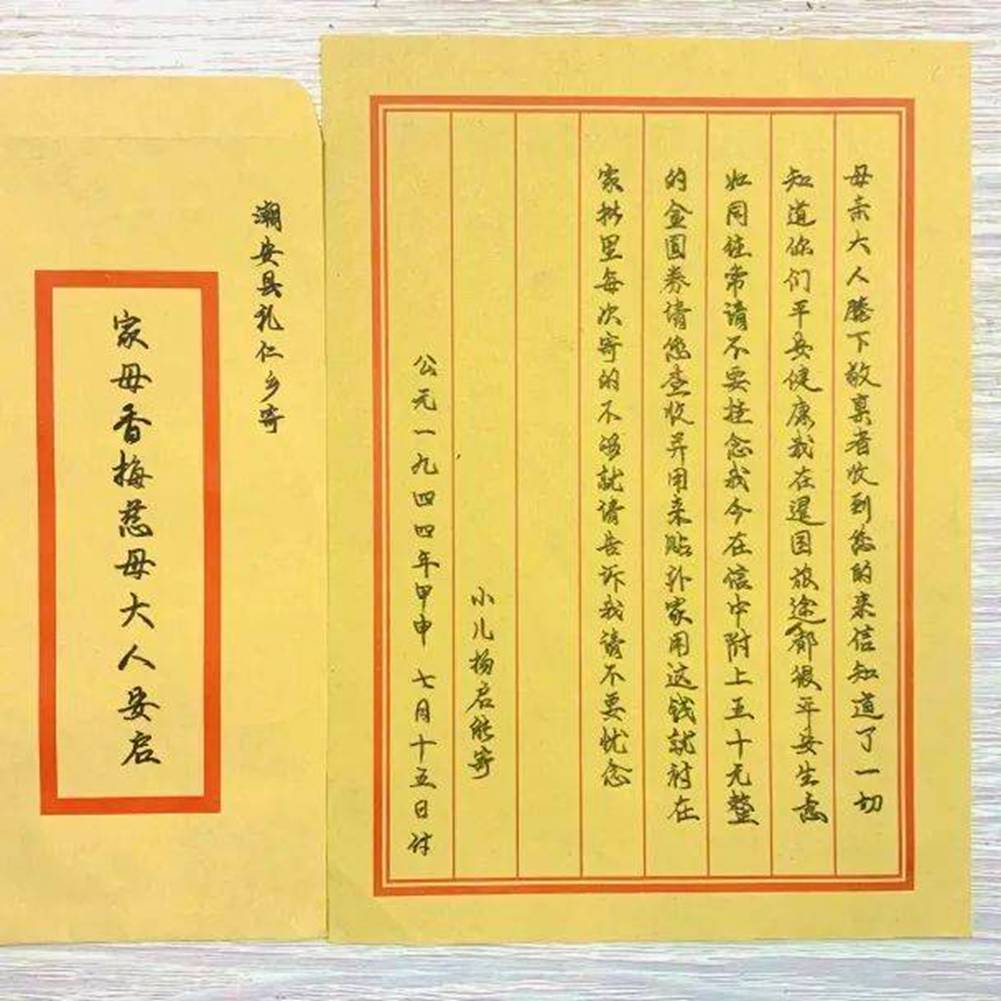 母亲大人膝下敬禀者收到您的来信知道了一切
知道你们平安健康我在暹国旅途都很平安生意
如同往常请不要挂念我今在信中附上五十元整
的金圆券请您查收并用来贴补家用这钱就附在
家批里每次寄的不够就请告诉我请不要忧念
小儿杨启能寄
公元一九四四年甲申 七月十五日付
潮安县礼仁乡寄
家母香梅慈母大人安启